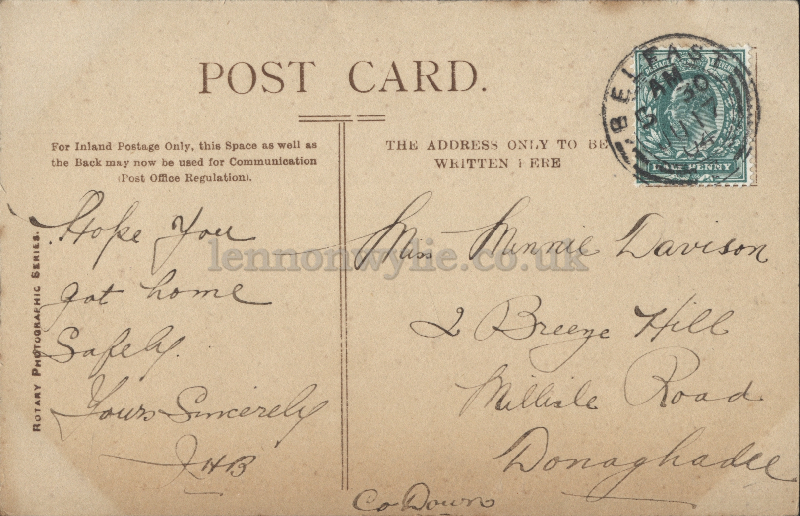 POST CARD.
For Inland Postage Only, this Space as well as
the Back may now be used for Communication
(Post Office Regulation).
THE ADDRESS ONLY TO BE
WRITTEN HERE
BELFAST
HALFPENNY
ROTARY PHOTOGRAPHIC SERIES.
Hope You
got home
Safely.
Yours Sincerely
JHB
Miss Minnie Davison
2 Breeze Hill
Millisle Road
Donaghadee
Co Down
lennonwylie.co.uk